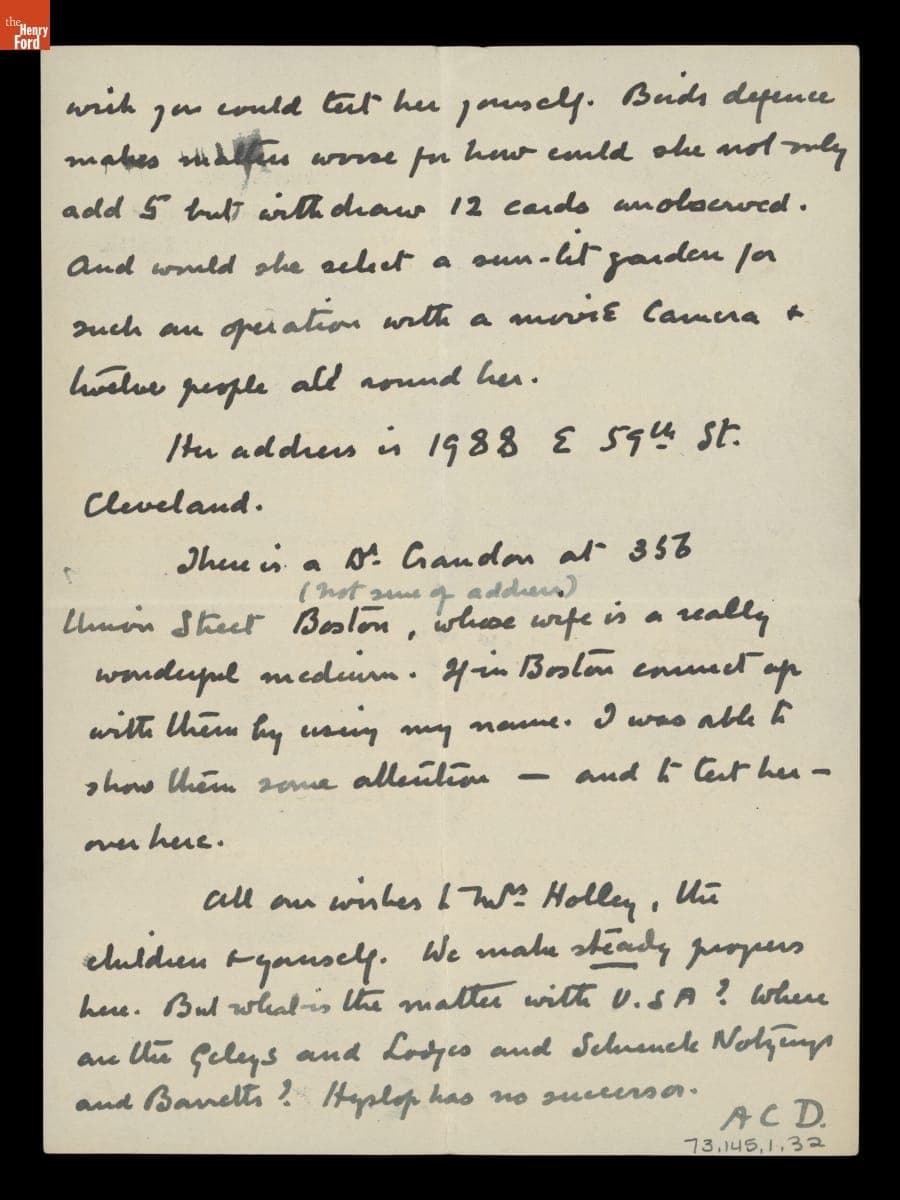 the
Henry
Ford
wish you could test her yourself. Birds defence
makes matters worse for how could she not only
add 5 but withdraw 12 cards unobserved.
And would she select a sun-lit garden for
such an operation with a movie Camera +
twelve people all round her.
Her address is 1988 E 59th St.
Cleveland.
There is a Dr. Crandon at 356
(not sure of address)
Union Street Boston, whose wife is a really
wonderful medium. If in Boston connect up
with them by using my name. I was able to
show them some attention — and to test her —
over here.
All our wishes to Mrs Holley, the
children + yourself. We make steady progress
here. But what is the matter with U.S A? Where
are the Geleys and Lodges and Schrenck Notzings
and Barretts? Hyslop has no successor.
A C D.
73.145.1.32